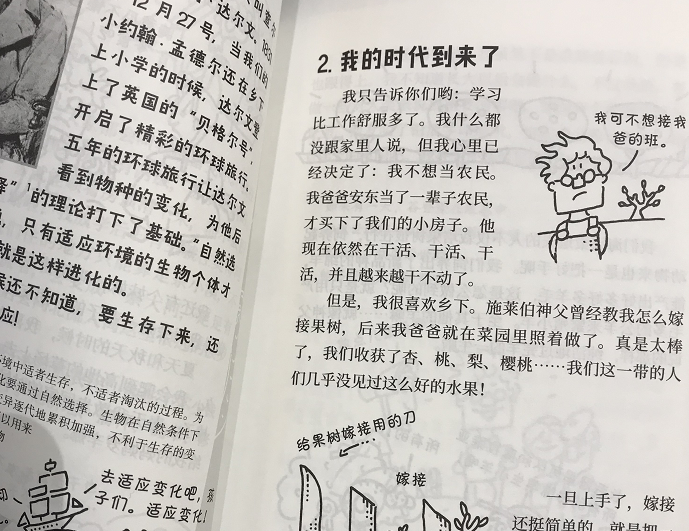 达尔文。1831
12月27号，当我们的
小约翰·孟德尔还在乡下
上小学的时候，达尔文登
上了英国的“贝格尔号”，
开启了精彩的环球旅行。
五年的环球旅行让达尔文
看到物种的变化，为他后
择”1的理论打下了基础。“自然选
只有适应环境的生物个体才
就是这样进化的。
候还不知道，要生存下来，还
应！
环境中适者生存，不适者淘汰的过程。为
化要通过自然选择。生物在自然条件下
变异逐代地累积加强，不利于生存的变
以用来
物
去适应变化吧，孩
子们。适应变化！
2. 我的时代到来了
我只告诉你们哟：学习
比工作舒服多了。我什么都
没跟家里人说，但我心里已
经决定了：我不想当农民。
我爸爸安东当了一辈子农民，
才买下了我们的小房子。他
现在依然在干活、干活、干
活，并且越来越干不动了。
我可不想接我
爸的班。
但是，我很喜欢乡下。施莱伯神父曾经教我怎么嫁
接果树，后来我爸爸就在菜园里照着做了。真是太棒
了，我们收获了杏、桃、梨、樱桃……我们这一带的人
们几乎没见过这么好的水果！
给果树嫁接用的刀
嫁接
一旦上手了，嫁接
还挺简单的，就是把一